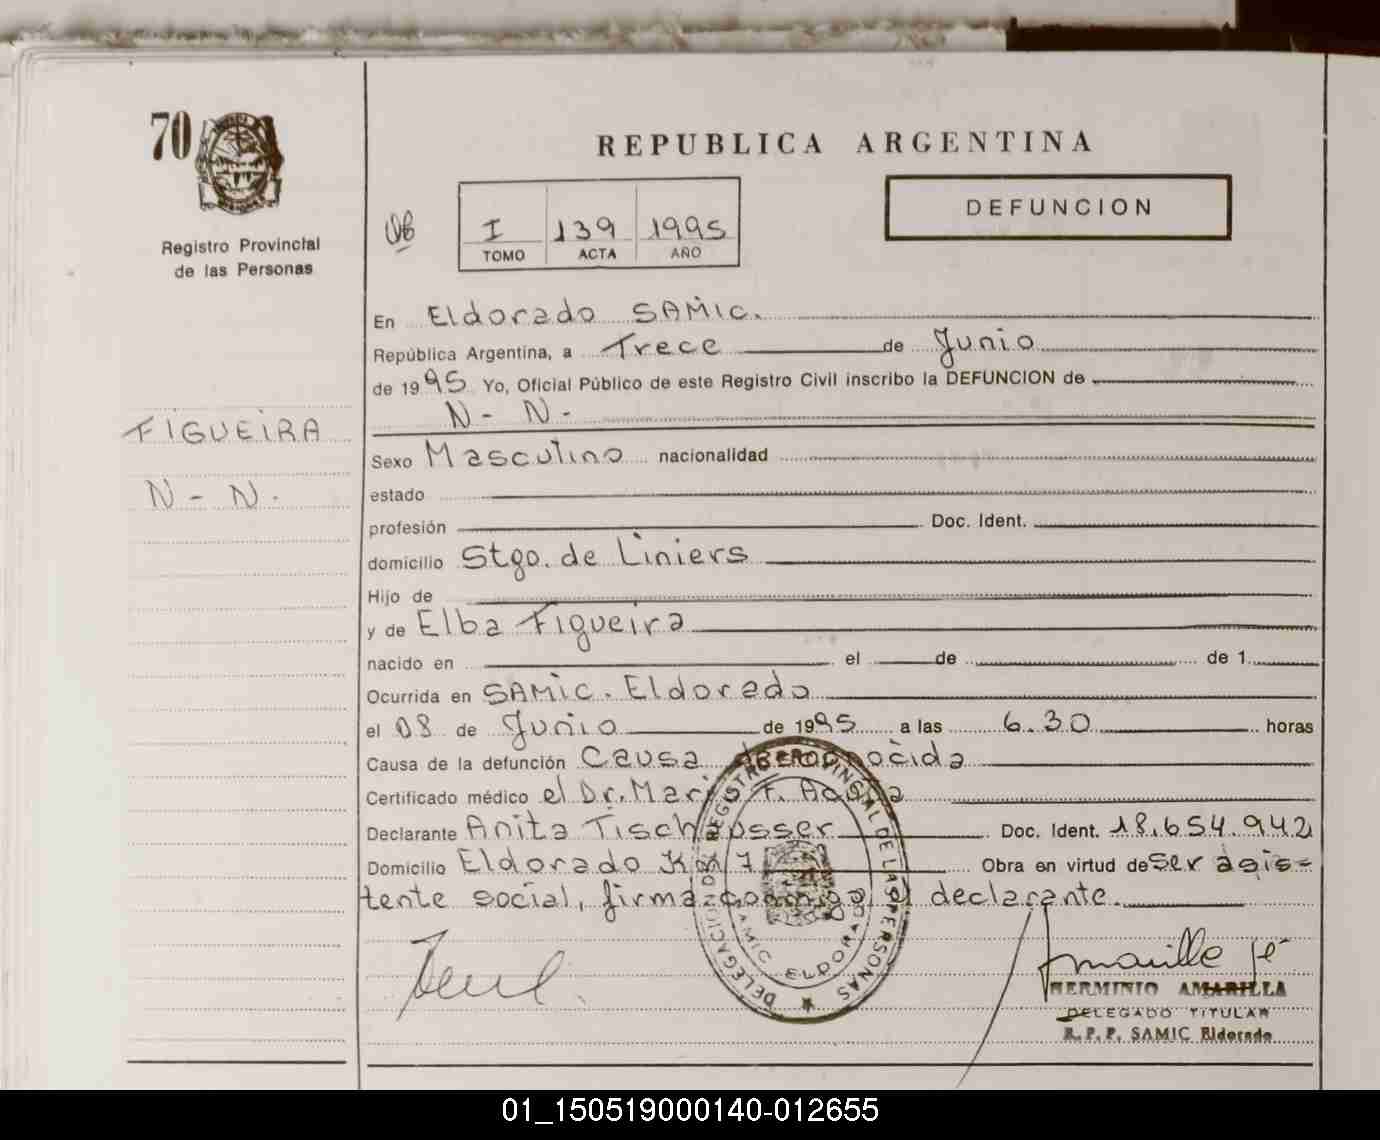 70
REPUBLICA ARGENTINA
DEFUNCION
Registro Provincial
de las Personas
I 139 1995
TOMO ACTA AÑO
En Eldorado SAMIC.
República Argentina, a Trece de Junio
de 1995 Yo, Oficial Público de este Registro Civil inscribo la DEFUNCION de
N - N -
FIGUEIRA
N - N.
Sexo Masculino nacionalidad
estado
profesión Doc. Ident.
domicilio Stgo. de Liniers
Hijo de
y de Elba Figueira
nacido en el de de 1
Ocurrida en SAMIC. Eldorado
el 08 de Junio de 1995 a las 6.30 horas
Causa de la defunción Causa desconocida
Certificado médico el Dr. Mari F.
Declarante Anita Doc. Ident. 18.654.942
Domicilio Eldorado Km 7 Obra en virtud de ser asis=
tente social, firma conmigo el declarante.
DELEGACION DEL REGISTRO PROVINCIAL DE LAS PERSONAS
SAMIC ELDORADO
HERMINIO AMARILLA
DELEGADO TITULAR
R. P. P. SAMIC Eldorado
01_150519000140-012655